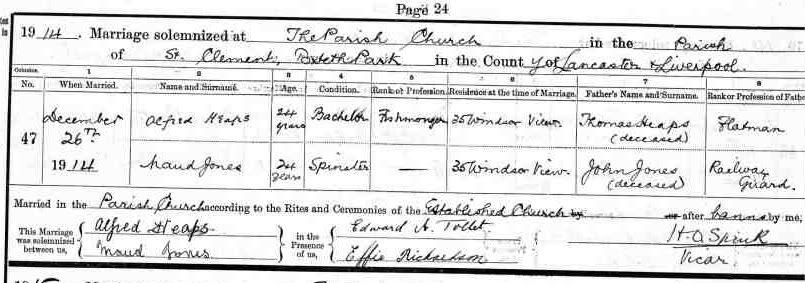 Page 24
1914. Marriage solemnized at The Parish Church in the Parish
of St. Clement, Toxteth Park in the County of Lancaster & Liverpool.
Columns. 1 2 3 4 5 6 7 8
No. When Married. Name and Surname. Age. Condition. Rank or Profession. Residence at the time of Marriage. Father's Name and Surname. Rank or Profession of Father
47 December 26th 1914
Alfred Heaps 24 years Bachelor Fishmonger 35 Windsor View. Thomas Heaps (deceased) Flatman
Maud Jones 24 years Spinster — 35 Windsor View. John Jones (deceased) Railway Guard.
Married in the Parish Church according to the Rites and Ceremonies of the Established Church by or after banns by me,
This Marriage was solemnized between us, Alfred Heaps Maud Jones
in the Presence of us, Edward A. Tollet Effie Richardson
H. O. Spink Vicar.